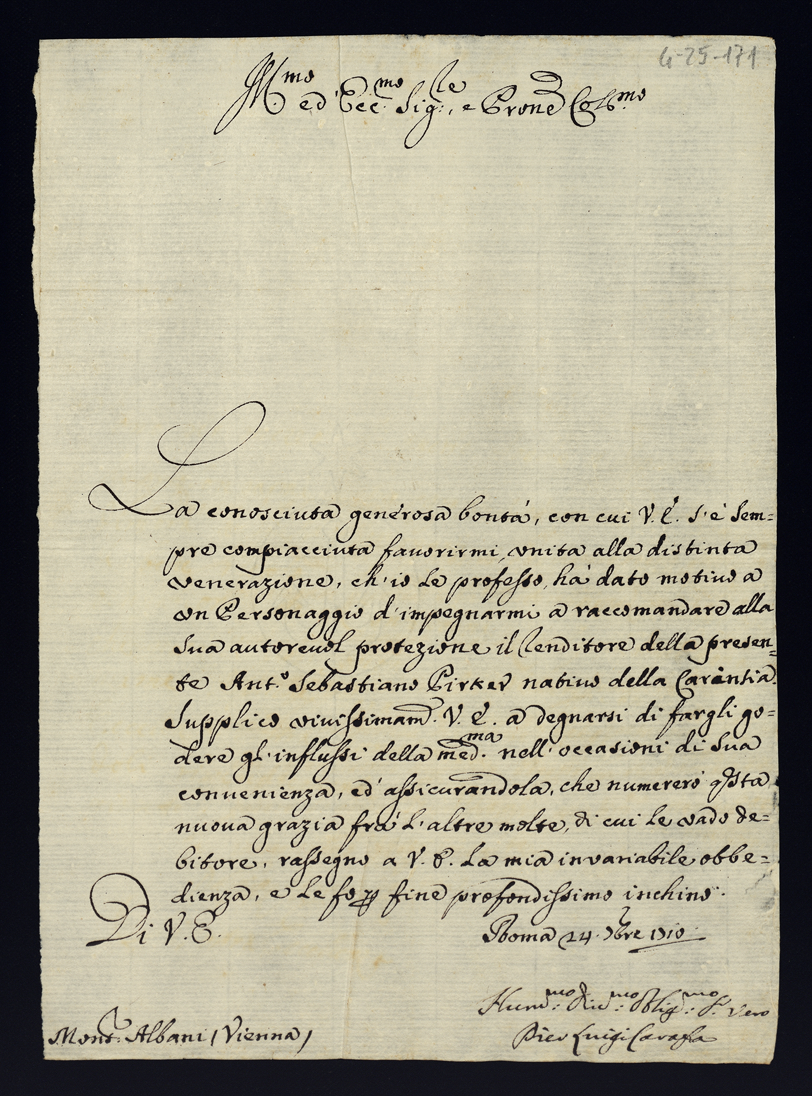 4-25-171
Ill.mo ed Ecc.mo Sig.le, e Prone Col.mo
La conosciuta generosa bontà, con cui V. E. s'è sem=
pre compiacciuta favorirmi, unita alla distinta
venerazione, ch'io le professo, hà dato motivo a
un Personaggio d'impegnarmi a raccomandare alla
sua autorevol protezione il Renditore della presen=
te Ant.o Sebastiano Pirker nativo della Carintia.
Supplico vivissimam.e V. E. a degnarsi di fargli go=
dere gl'influssi della med.ma nell'occasioni di sua
convenienza, ed' assicurandola, che numererò q̃sta
nuova grazia frà l'altre molte, di cui le vado de=
bitore, rassegno a V. E. la mia invariabile obbe=
dienza, e le fo p fine profondissimo inchino.
Di V. E.
Roma 24. Xbre 1710
Hum.mo Div.mo Oblig.mo S. vero
Pier Luigi Carafa
Mons.r Albani (Vienna)